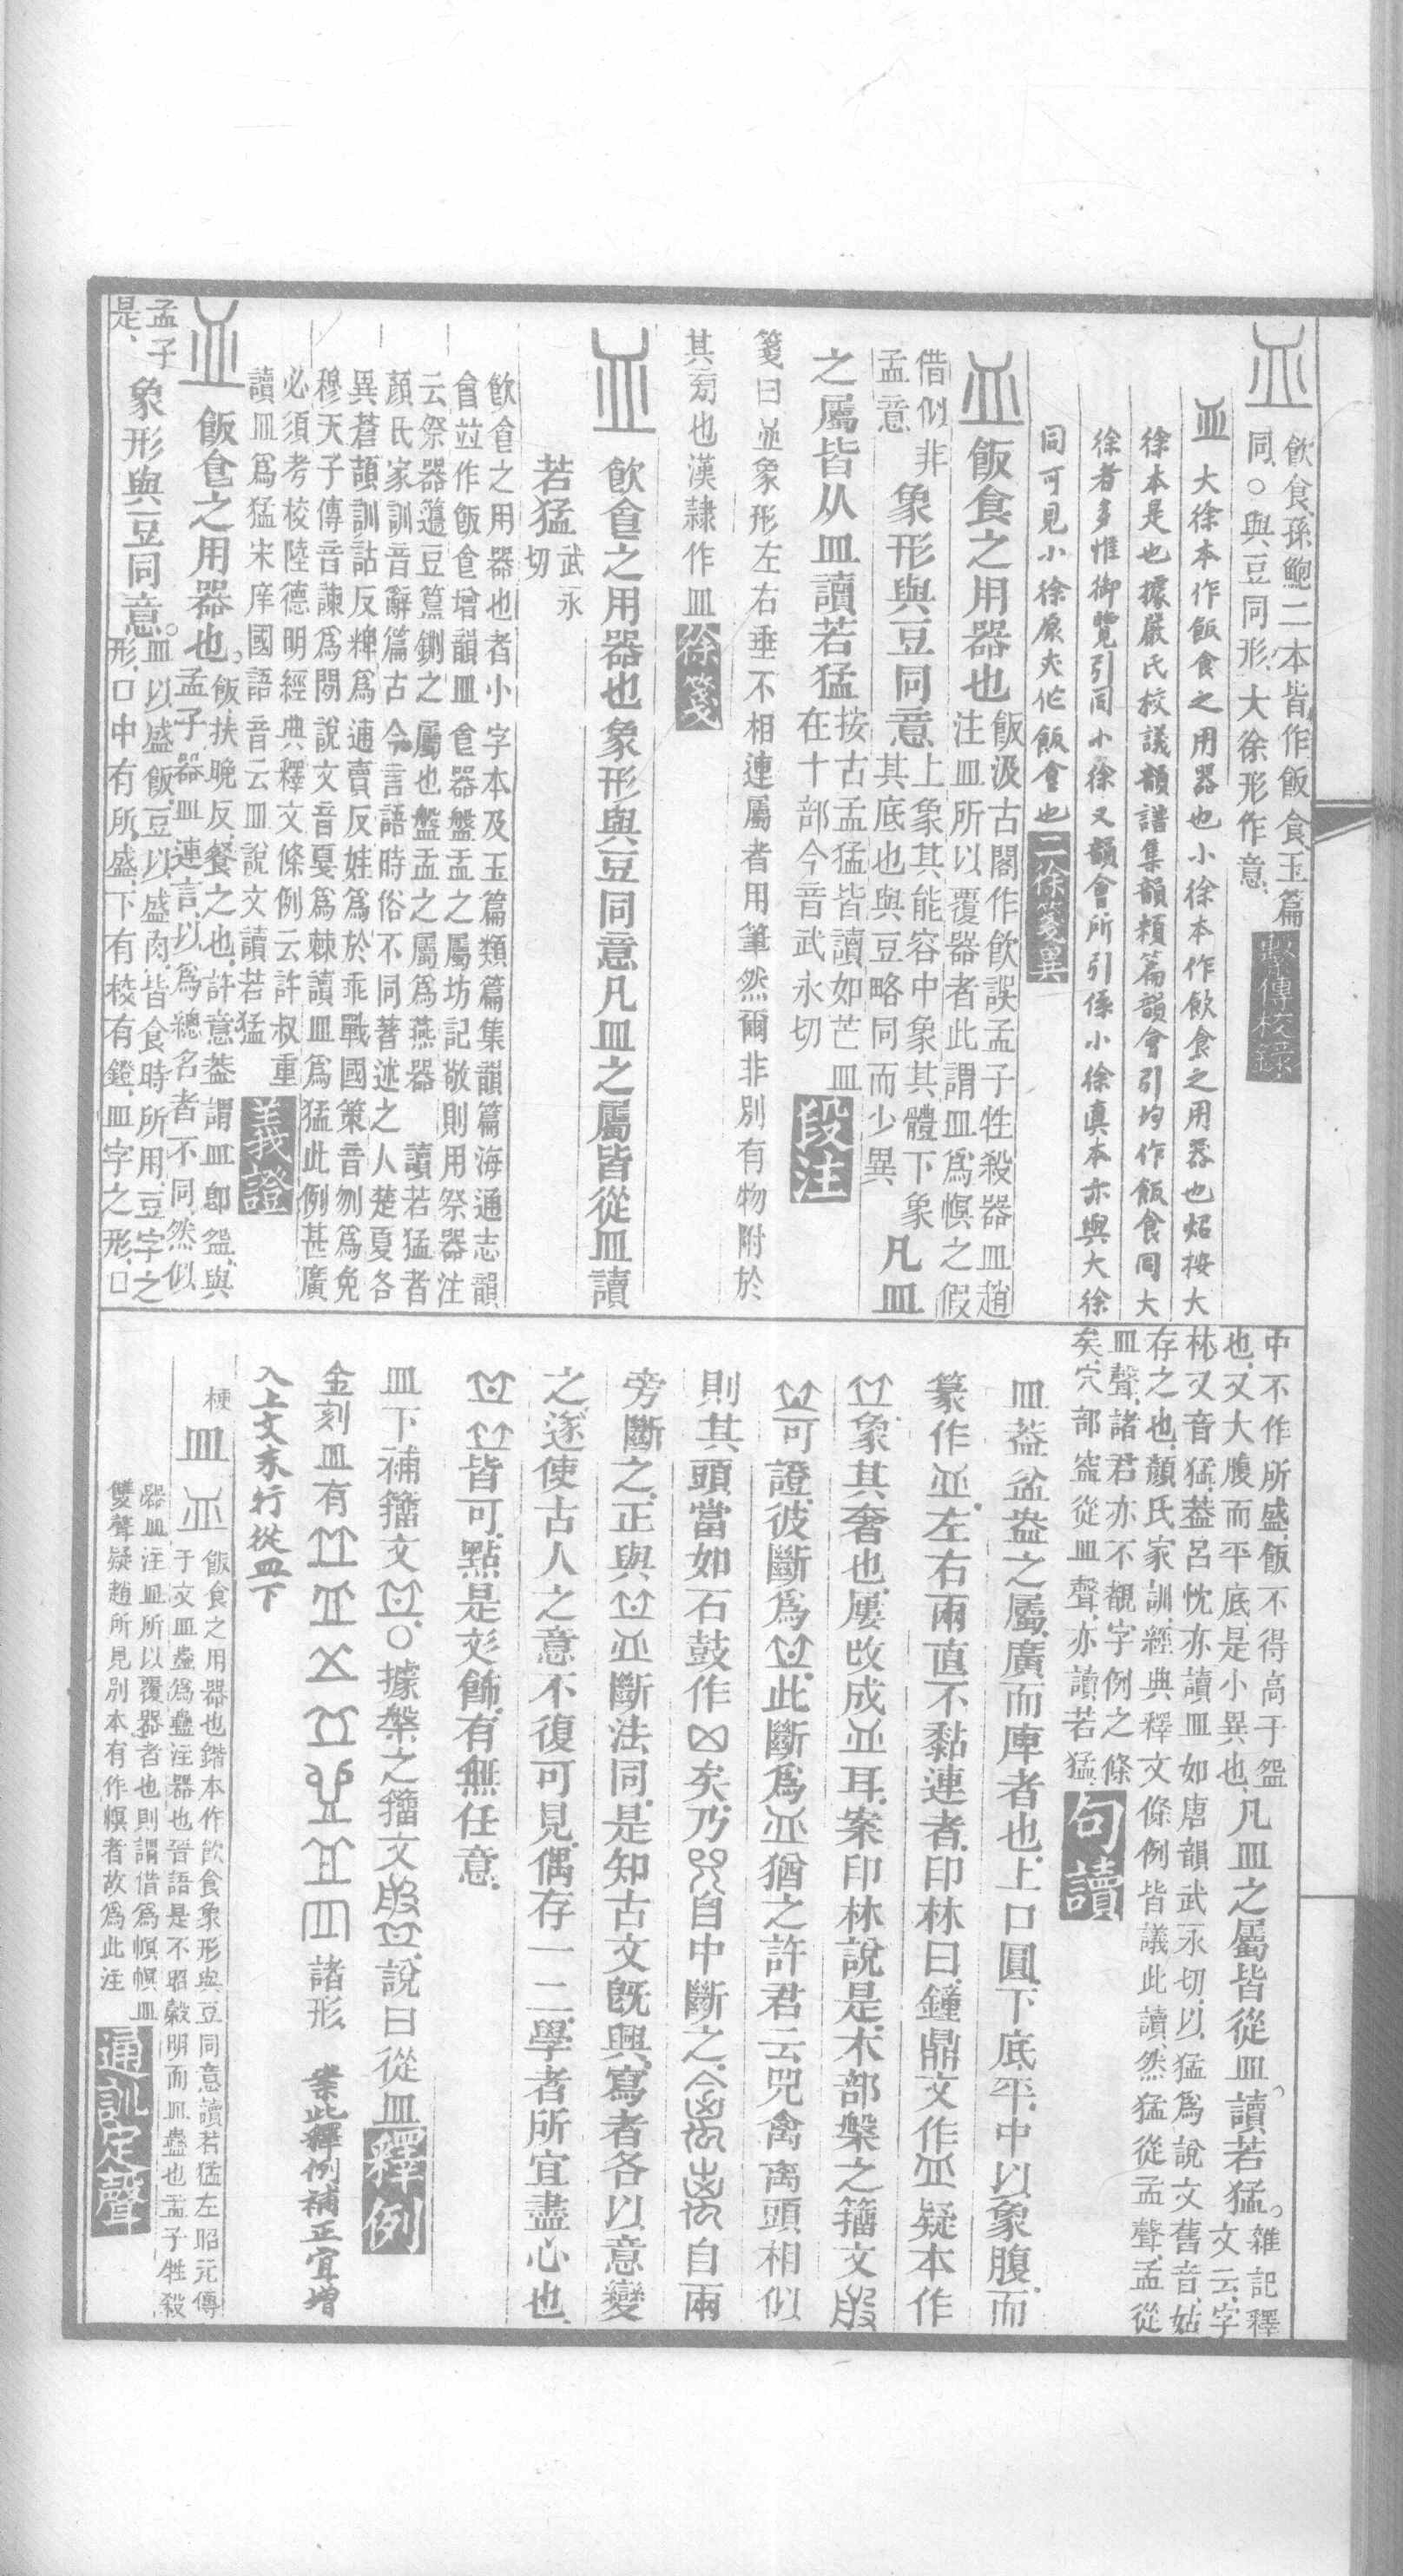 飲食孫鮑二本皆作飯食玉篇
同○與豆同形大徐形作意
繫傳校錄
皿 大徐本作飯食之用器也小徐本作飲食之用器也炤按大
徐本是也據嚴氏校議韻譜集韻類篇韻會引均作飯食同大
徐者多惟御覽引同小徐又韻會所引係小徐真本亦與大徐
同可見小徐原夾作飯食也 二徐箋異
飯食之用器也
飯汲古閣作飲誤孟子牲殺器皿趙
注皿所以覆器者此謂皿爲幎之假
借似非
孟意
象形與豆同意
上象其能容中象其體下象
其底也與豆略同而少異
凡皿
之屬皆从皿讀若猛
按古孟猛皆讀如芒皿
在十部今音武永切
段注
箋曰 象形左右垂不相連屬者用筆然爾非別有物附於
其旁也漢隸作皿 徐箋
飲食之用器也象形與豆同意凡皿之屬皆從皿讀
若猛 武永
切
飲食之用器也者小字本及玉篇類篇集韻篇海通志韻
會竝作飯食增韻皿食器盤盂之屬坊記敬則用祭器注
云祭器籩豆簋鉶之屬也盤盂之屬爲燕器 讀若猛者
顏氏家訓音辭篇古今言語時俗不同著述之人楚夏各
異蒼頡訓詁反稗爲逋賣反娃爲於乖戰國策音刎爲免
穆天子傳音諫爲閒說文音戛爲棘讀皿爲猛此例甚廣
必須考校陸德明經典釋文條例云許叔重
讀皿爲猛宋庠國語音云皿說文讀若猛
義證
飯食之用器也。
飯扶晚反餐之也許意葢謂皿卽盌與
孟子器皿連言以爲總名者不同然似
孟子
是、
象形與豆同意。
皿以盛飯豆以盛肉皆食時所用豆字之
形口中有所盛下有校有鐙皿字之形口
中不作所盛飯不得高于盌
也又大腹而平底是小異也
凡皿之屬皆從皿。讀若猛。
雜記釋
文云字
林又音猛葢呂忱亦讀皿如唐韻武永切以猛爲說文舊音姑
存之也顏氏家訓經典釋文條例皆議此讀然猛從孟聲孟從
皿聲諸君亦不觀字例之條
矣穴部窋從皿聲亦讀若猛
句讀
皿葢盆盎之屬廣而庳者也上口圓下底平中以象腹而
篆作 左右兩直不黏連者印林曰鐘鼎文作 疑本作
象其奢也屢改成 耳案印林說是木部槃之籀文
可證彼斷爲 此斷爲 猶之許君云兕禽离頭相似
則其頭當如石鼓作 矣乃 自中斷之 自兩
旁斷之正與 斷法同是知古文旣興寫者各以意變
之遂使古人之意不復可見偶存一二學者所宜盡心也
皆可點是彣飾有無任意
皿下補籀文 ○據槃之籀文 說曰從皿 釋例
金刻皿有 諸形 案此釋例補正宜增
入上文末行從皿下
梗
皿
飯食之用器也鍇本作飲食象形與豆同意讀若猛左昭元傳
于文皿蟲爲蠱注器也晉語是不昭穀明而皿蠱也孟子牲殺
器皿注皿所以覆器者也則謂借爲幎幎皿
雙聲疑趙所見別本有作幎者故爲此注
通訓定聲